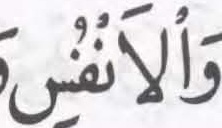 وَالْاَنْفُسِ